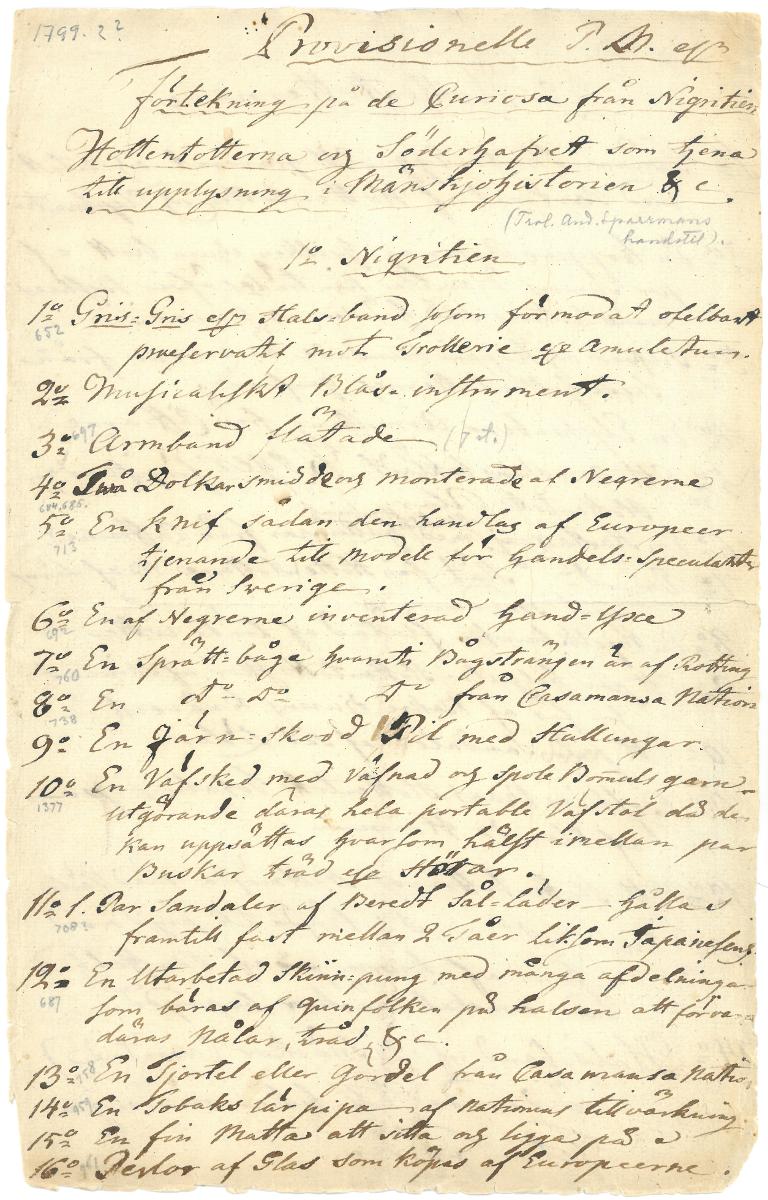 1799. 2?
Provisionelle P. M. eller
förtekning på de Curiosa från Nigritien
Hottentotterna og Söderhafvett som tjena
till upplysning i Mänskjohistorien & c.
(Trol. And. Sparrmans
handstil).
1o Nigritien
1o Gris=Gris eller Hals=band såsom förmodat ofelbart
652
præservatif mot Trollerie eller Amuletum.
2o Musicaliskt Blås=instrument.
3o Armband flätade (7 st.)
697
4o Två Dolkar smidde og monterade af Negrerne
684,685.
5o En knif sådan den handlas af Europeer
713
tjenande till modell för handels=Speculanter
från Sverige.
6o En af Negrerne inventerad Hand=Yxe
692
7o En Sprätt=båge hvarvti Bågsträngen är af Rotting
760
8o En do do do från Casamansa Nation
738
9o En Järn=skodd Pil med Hullungar.
10o En Väfsked med väfnad og spole Bomulsgarn
1377
utgörande däras hela portable Väfstol då de
kan uppsättas hvarsom hälst imellan par
Buskar träd eller Störar.
11o 1. Par Sandaler af Beredt Sål=läder hålla s
708?
framtill fast mellan 2 Tåer liksom Japanesens
12o En Utarbetad Skinn=pung med många afdelninga
687
som bäras af quinfolken på halsen att förva
däras Nålar, tråd, & c.
13o En Tjortel eller Gördel från Casamansa Natio
14o En Tobaks lärpipa af Nationens tillvärkning
15o En fin Matta att sitta og ligga på
16o Perlor af Glas som köpes af Europeerne.